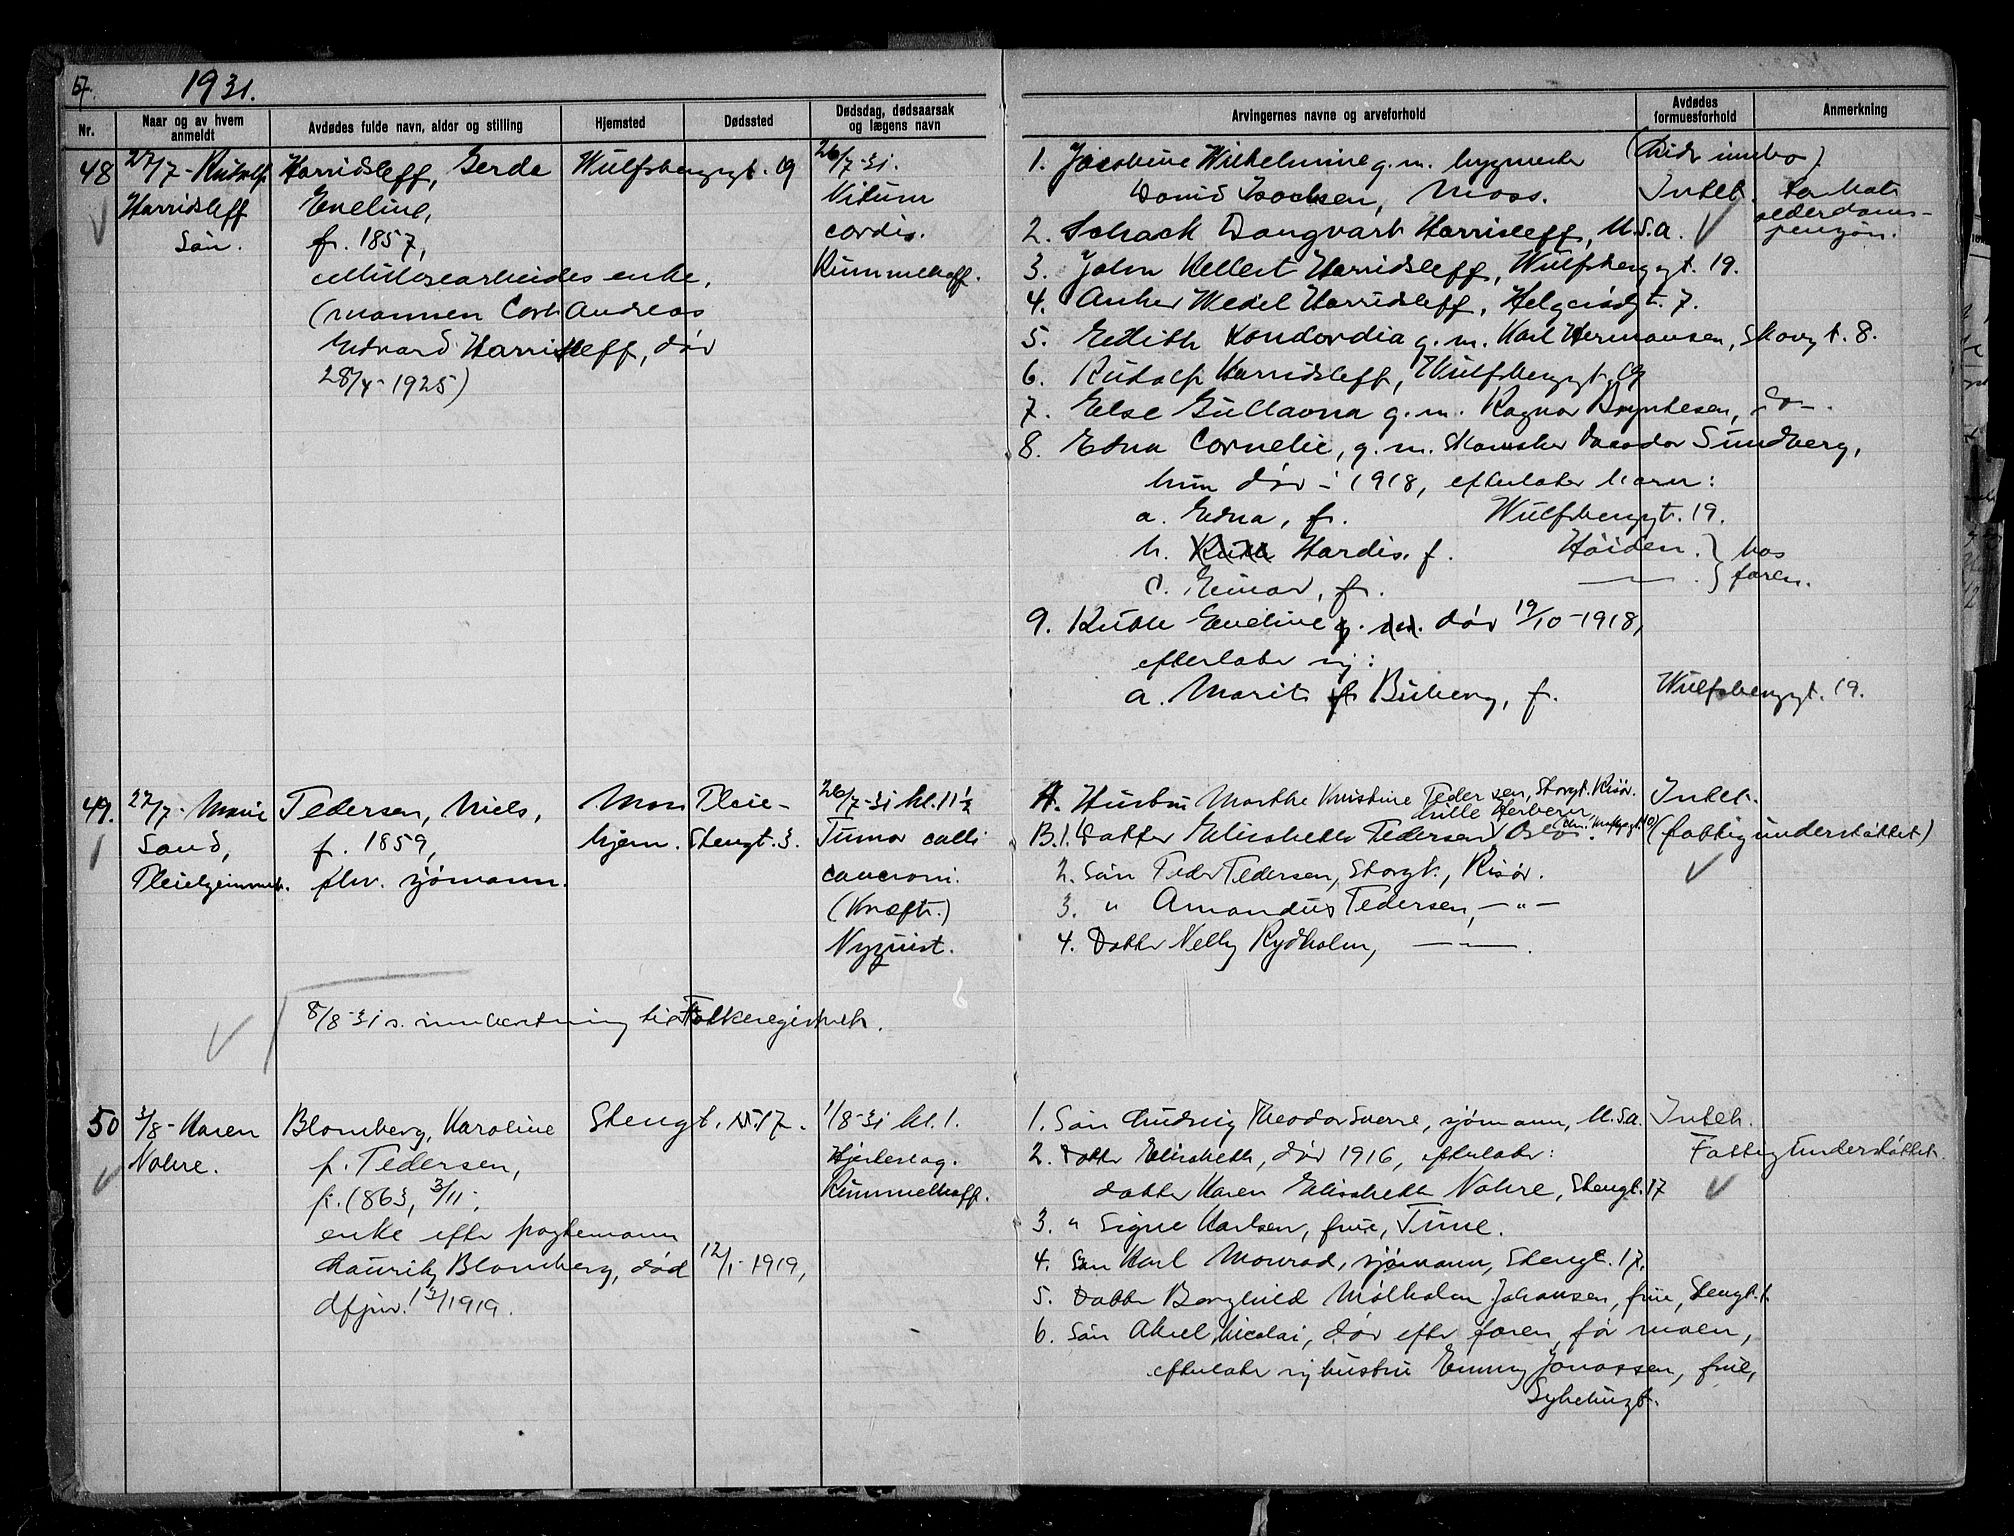 57.
1931.
Nr.
Naar og av hvem anmeldt
Avdødes fulde navn, alder og stilling
Hjemsted
Dødssted
Dødsdag, dødsaarsak og lægens navn
Arvingernes navne og arveforhold
Avdødes formuesforhold
Anmerkning
48
27/7 - Rudolf
Harridsleff
Sön.
Harridsleff, Gerda
Eveline,
f. 1857,
enke,
(mannen Carl Andreas
Edvard Harridsleff, död
28/4-1925)
Wulfsbergsgt. 19
26/7-31.
Vitium
cordis.
Kummelhoff.
1. Jacobine Wilhelmine g.m. bygmester
David Isachsen, Moss.
2. Schack Dangvart Harridsleff, U.S.A.
3. John Kellert Harridsleff, Wulfsbergsgt. 19.
4. Anker Wedel Harridsleff, Helgerödgt. 7.
5. Edith Konkordia g.m. Karl Hermansen, Skovgt. 8.
6. Rudolf Harridsleff, Wulfsbergsgt. 19
7. Else Gullaona g.m. Ragnar Bryntesen, -do-.
8. Edna Cornelie, g.m. Sundberg,
hun död i 1918, efterlater barn:
a. Edna, fr. Wulfsbergsgt. 19.
b. Ruth Hardis. f. Höiden. } hos
c. Einar, fr. — . } faren.
9. Ruth Eveline g. m. död 19/10-1918,
efterlater sig:
a. Marit fr Buberg, f. Wulfsbergsgt. 19.
(Lidt innbo)
Intet.
har hat
alderdoms-
pensjon.
49.
27/7 - Marie
Sand,
Pleiehjemmet.
Pedersen, Niels,
f. 1859,
fhv. sjömann.
Moss Pleie-
hjem. Stengt. 3.
26/7-31 kl. 11½
Tumor colli
cancrom.
(Kræft.)
Nyquist.
A. Hustru Marthe Kristine Pedersen, Storgt. Risör.
B. 1. Datter Elisabeth Pedersen, Oslo.
2. Sön Peder Pedersen, Storgt., Risör.
3. " Amandus Pedersen, — " —
4. Datter Nelly Rydholm, — — .
Intet.
(fattigunderstöttet)
8/8-31 s. innberetning til Folkeregistret.
50
3/8 - Karen
Nohre.
Blomberg, Karoline
f. Pedersen,
f. 1863, 3/11;
enke efter
Lauritz Blomberg, död 12/1-1919,
1919.
Stengt. nr. 17.
1/8-31 kl. 1.
Hjerteslag.
Kummelhoff.
1. Sön Ludvig Theodor Sverre, sjömann, U.S.A.
2. Datter Elisabeth, död 1916, efterlater:
datter Karen Elisabeth Nohre, Stengt. 17
3. " Signe Karlsen, frue, Tune.
4. Sön Karl Monrad, sjömann, Stengt. 17.
5. Datter Borghild Mölholm Johansen, frue, Stengt. 1.
6. Sön Aksel Nicolai, död efter faren, för moren,
efterlater sig hustru Emmy Jonassen, frue,
Sykehusgt.
Intet.
Fattigunderstöttet.